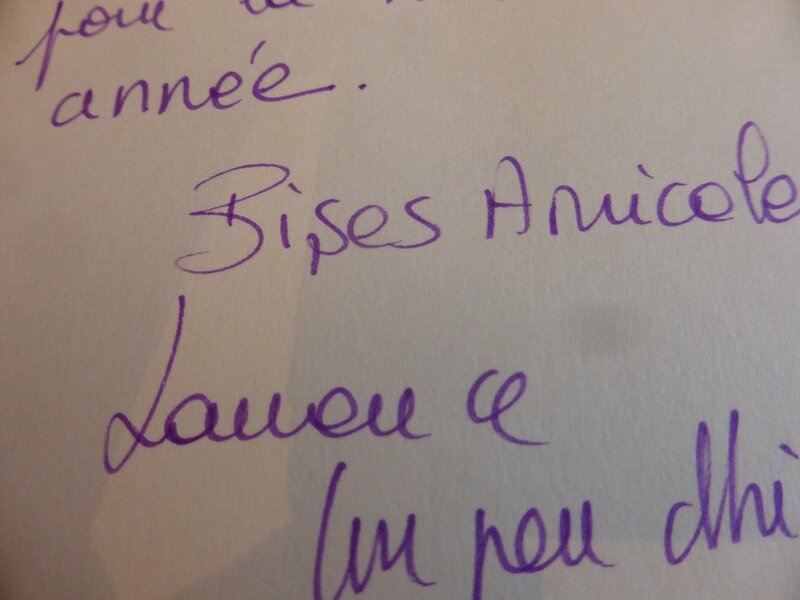 pour la
année.
Bises Amicale
Laurence
Un peu d'hi